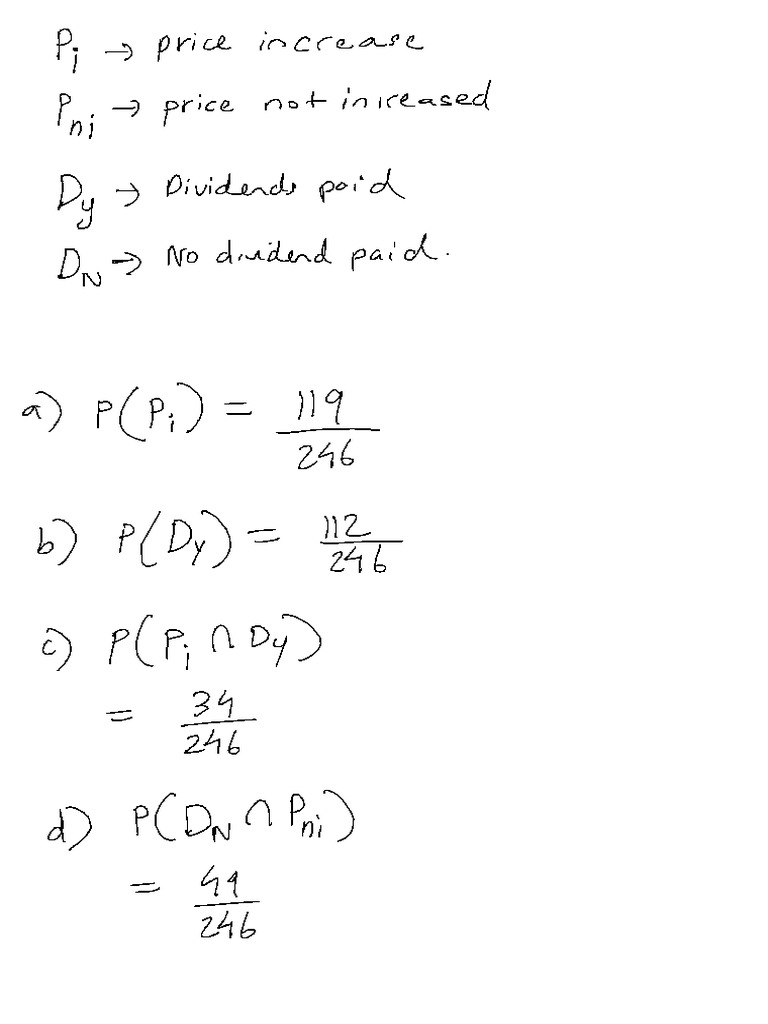 Pi → price increase
Pni → price not increased
Dy → Dividends paid
DN → No dividend paid.
a) P(Pi) = 119/246
b) P(Dy) = 112/246
c) P(Pi ∩ Dy)
= 34/246
d) P(DN ∩ Pni)
= 49/246